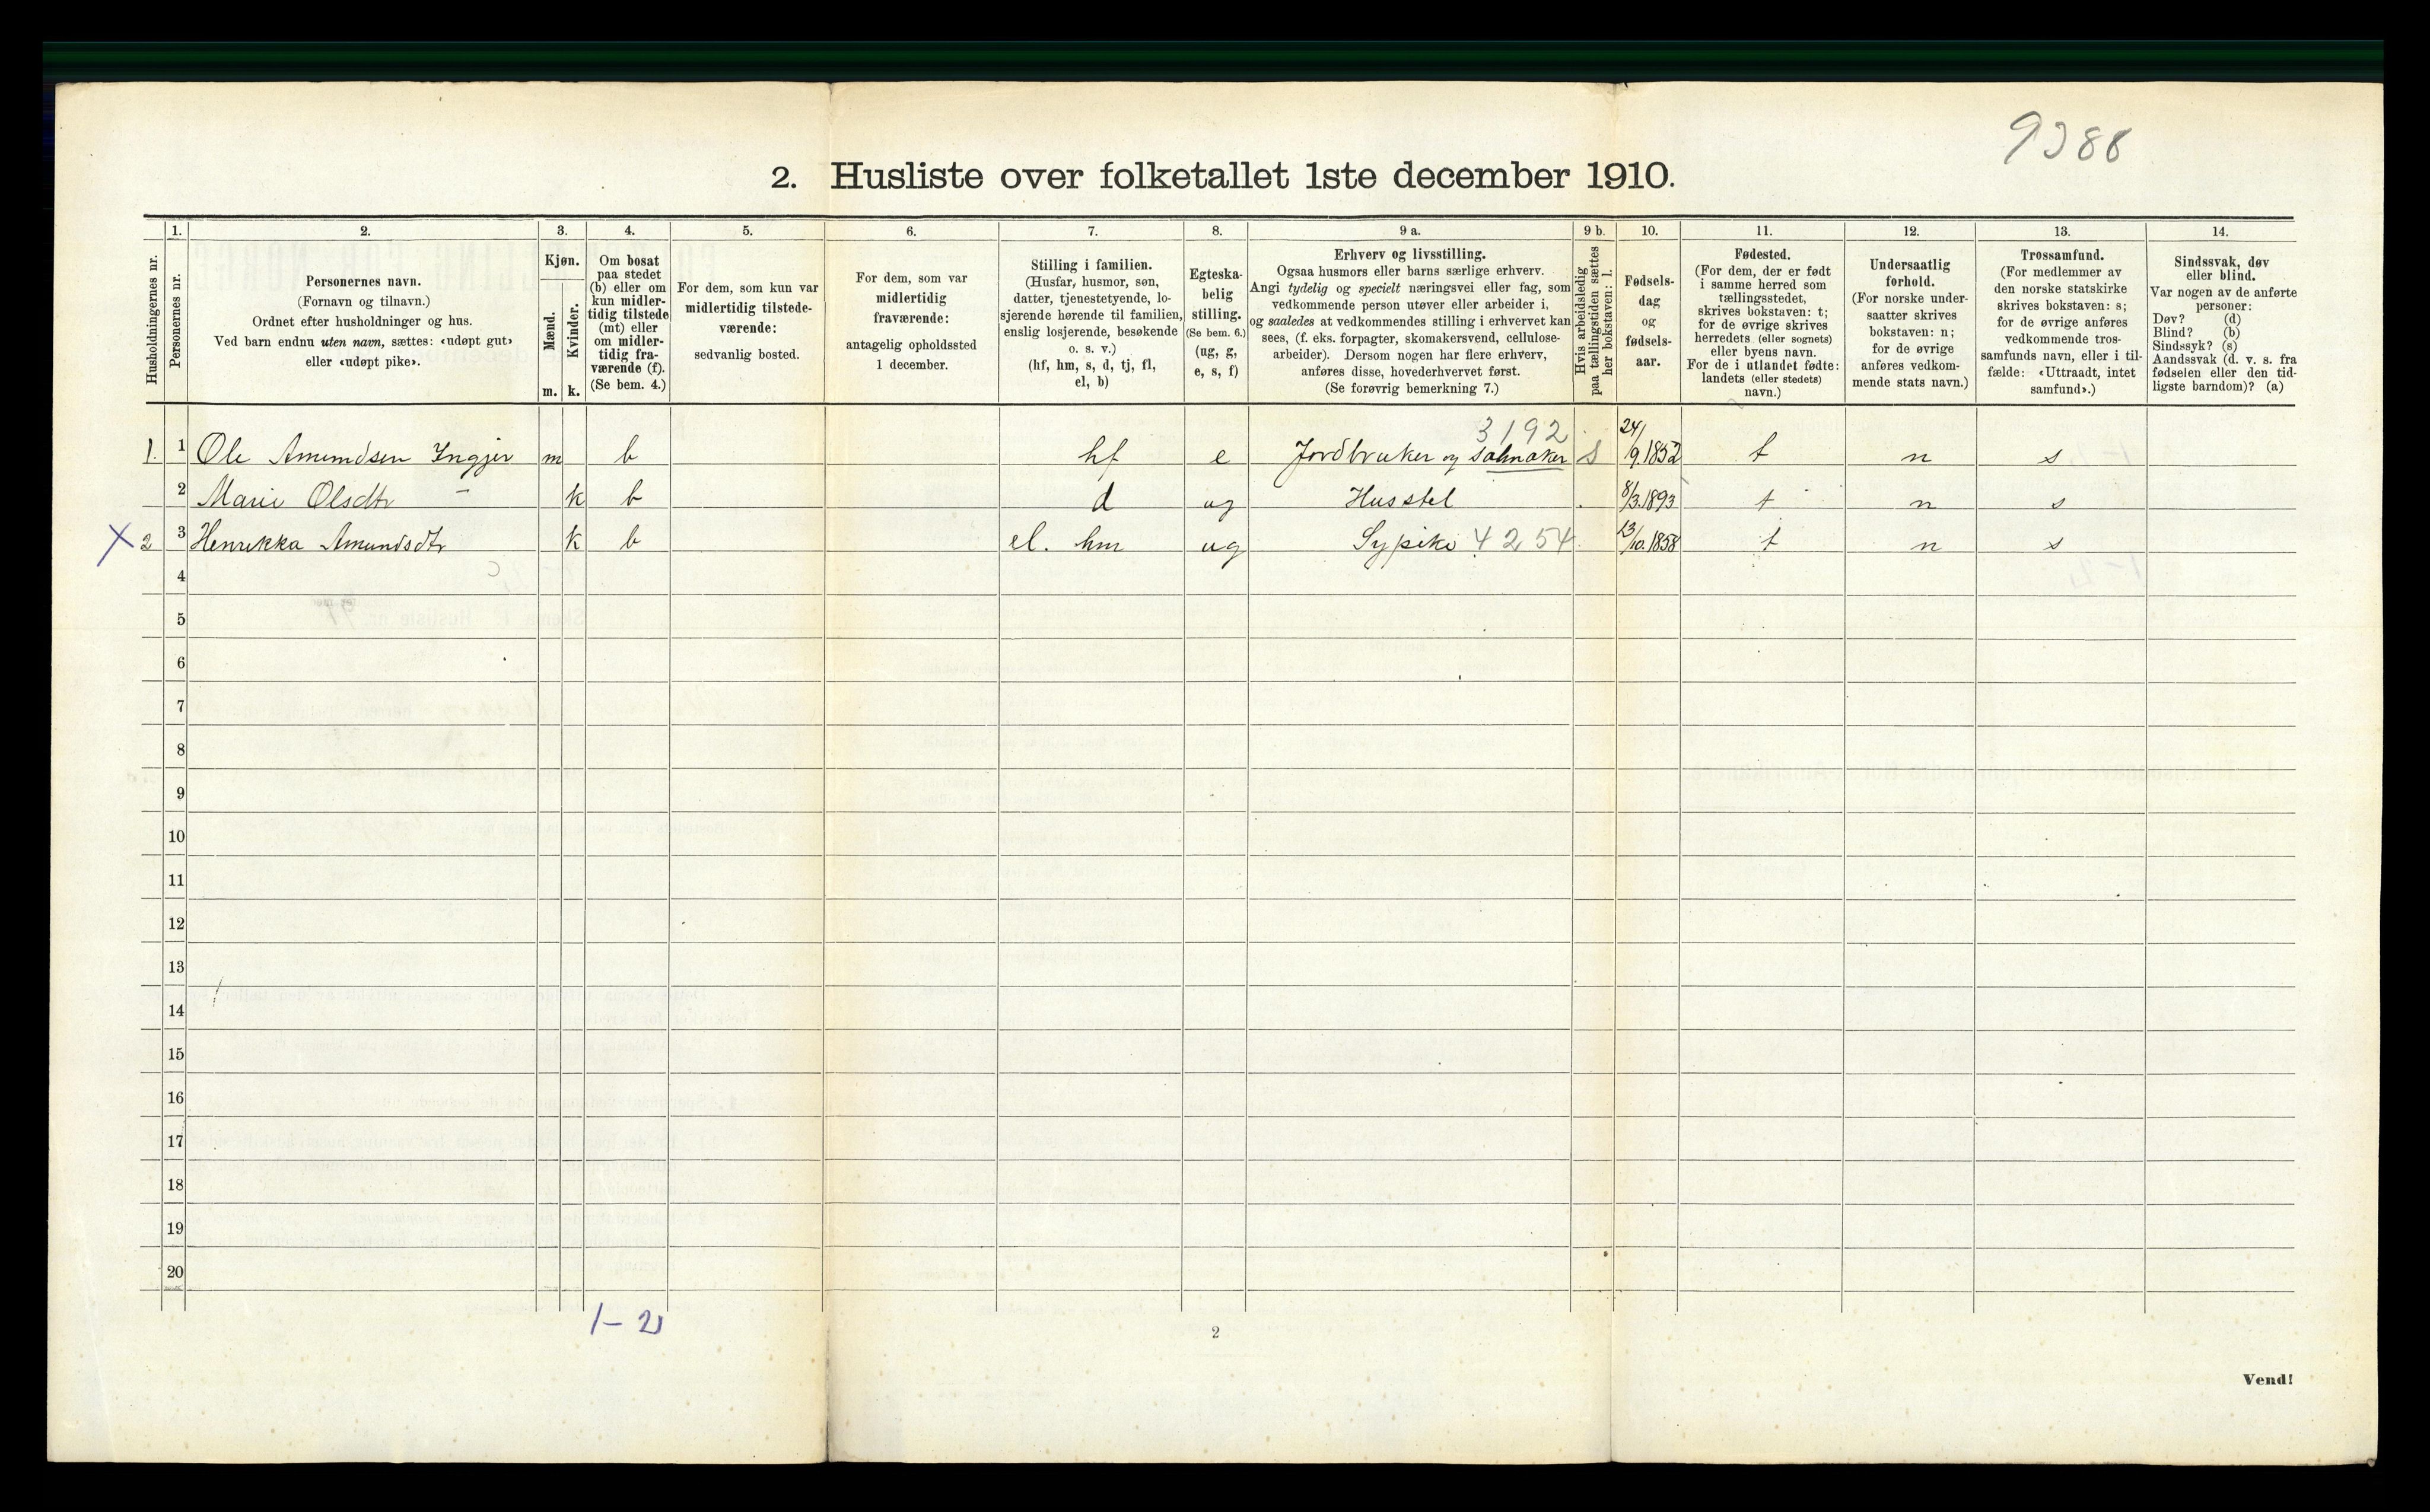 9388
2. Husliste over folketallet 1ste december 1910.
Husholdningernes nr.
1.
Personernes nr.
2.
Personernes navn.
(Fornavn og tilnavn.)
Ordnet efter husholdninger og hus.
Ved barn endnu uten navn, sættes: «udøpt gut»
eller «udøpt pike».
3.
Kjøn.
Mænd.
Kvinder.
m. k.
4.
Om bosat
paa stedet
(b) eller om
kun midler-
tidig tilstede
(mt) eller
om midler-
tidig fra-
værende (f).
(Se bem. 4.)
5.
For dem, som kun var
midlertidig tilstede-
værende:
sedvanlig bosted.
6.
For dem, som var
midlertidig
fraværende:
antagelig opholdssted
1 december.
7.
Stilling i familien.
(Husfar, husmor, søn,
datter, tjenestetyende, lo-
sjerende hørende til familien,
enslig losjerende, besøkende
o. s. v.)
(hf, hm, s, d, tj, fl,
el, b)
8.
Egteska-
belig
stilling.
(Se bem. 6.)
(ug, g,
e, s, f)
9 a.
Erhverv og livsstilling.
Ogsaa husmors eller barns særlige erhverv.
Angi tydelig og specielt næringsvei eller fag, som
vedkommende person utøver eller arbeider i,
og saaledes at vedkommendes stilling i erhvervet kan
sees, (f. eks. forpagter, skomakersvend, cellulose-
arbeider). Dersom nogen har flere erhverv,
anføres disse, hovederhvervet først.
(Se forøvrig bemerkning 7.)
9 b.
Hvis arbeidsledig
paa tællingstiden sættes
her bokstaven: l.
10.
Fødsels-
dag
og
fødsels-
aar.
11.
Fødested.
(For dem, der er født
i samme herred som
tællingsstedet,
skrives bokstaven: t;
for de øvrige skrives
herredets (eller sognets)
eller byens navn.
For de i utlandet fødte:
landets (eller stedets)
navn.)
12.
Undersaatlig
forhold.
(For norske under-
saatter skrives
bokstaven: n;
for de øvrige
anføres vedkom-
mende stats navn.)
13.
Trossamfund.
(For medlemmer av
den norske statskirke
skrives bokstaven: s;
for de øvrige anføres
vedkommende tros-
samfunds navn, eller i til-
fælde: «Uttraadt, intet
samfund».)
14.
Sindssvak, døv
eller blind.
Var nogen av de anførte
personer:
Døv? (d)
Blind? (b)
Sindssyk? (s)
Aandssvak (d. v. s. fra
fødselen eller den tid-
ligste barndom)? (a)
3192
1. 1 Ole Amundsen Yngjer m b hf e Jordbruker og salmaker s 24/9.1852 t n s
2 Marie Olsdtr – k b d ug Husstel 8/3.1893 t n s
X 2 3 Henrikka Amundsdtr k b el. hm ug Sypike 4254 13/10.1858 t n s
4
5
6
7
8
9
10
11
12
13
14
15
16
17
18
19
20
1–2
2
Vend!